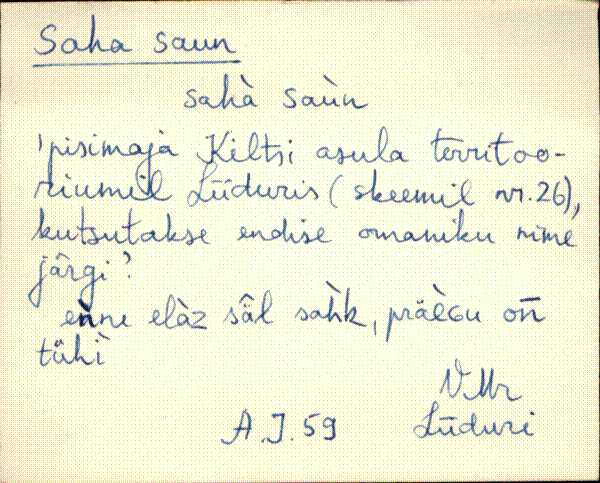 Saha saun
sahà saùn
'pisimaja Kiltsi asula territoo-
riumil Lüduris (skeemil nr. 26),
kutsutakse endise omaniku nime
järgi?
enne elàz sâl sahk, präècu on̄
tühì
V.Mr
A.J. 59 Lüduri